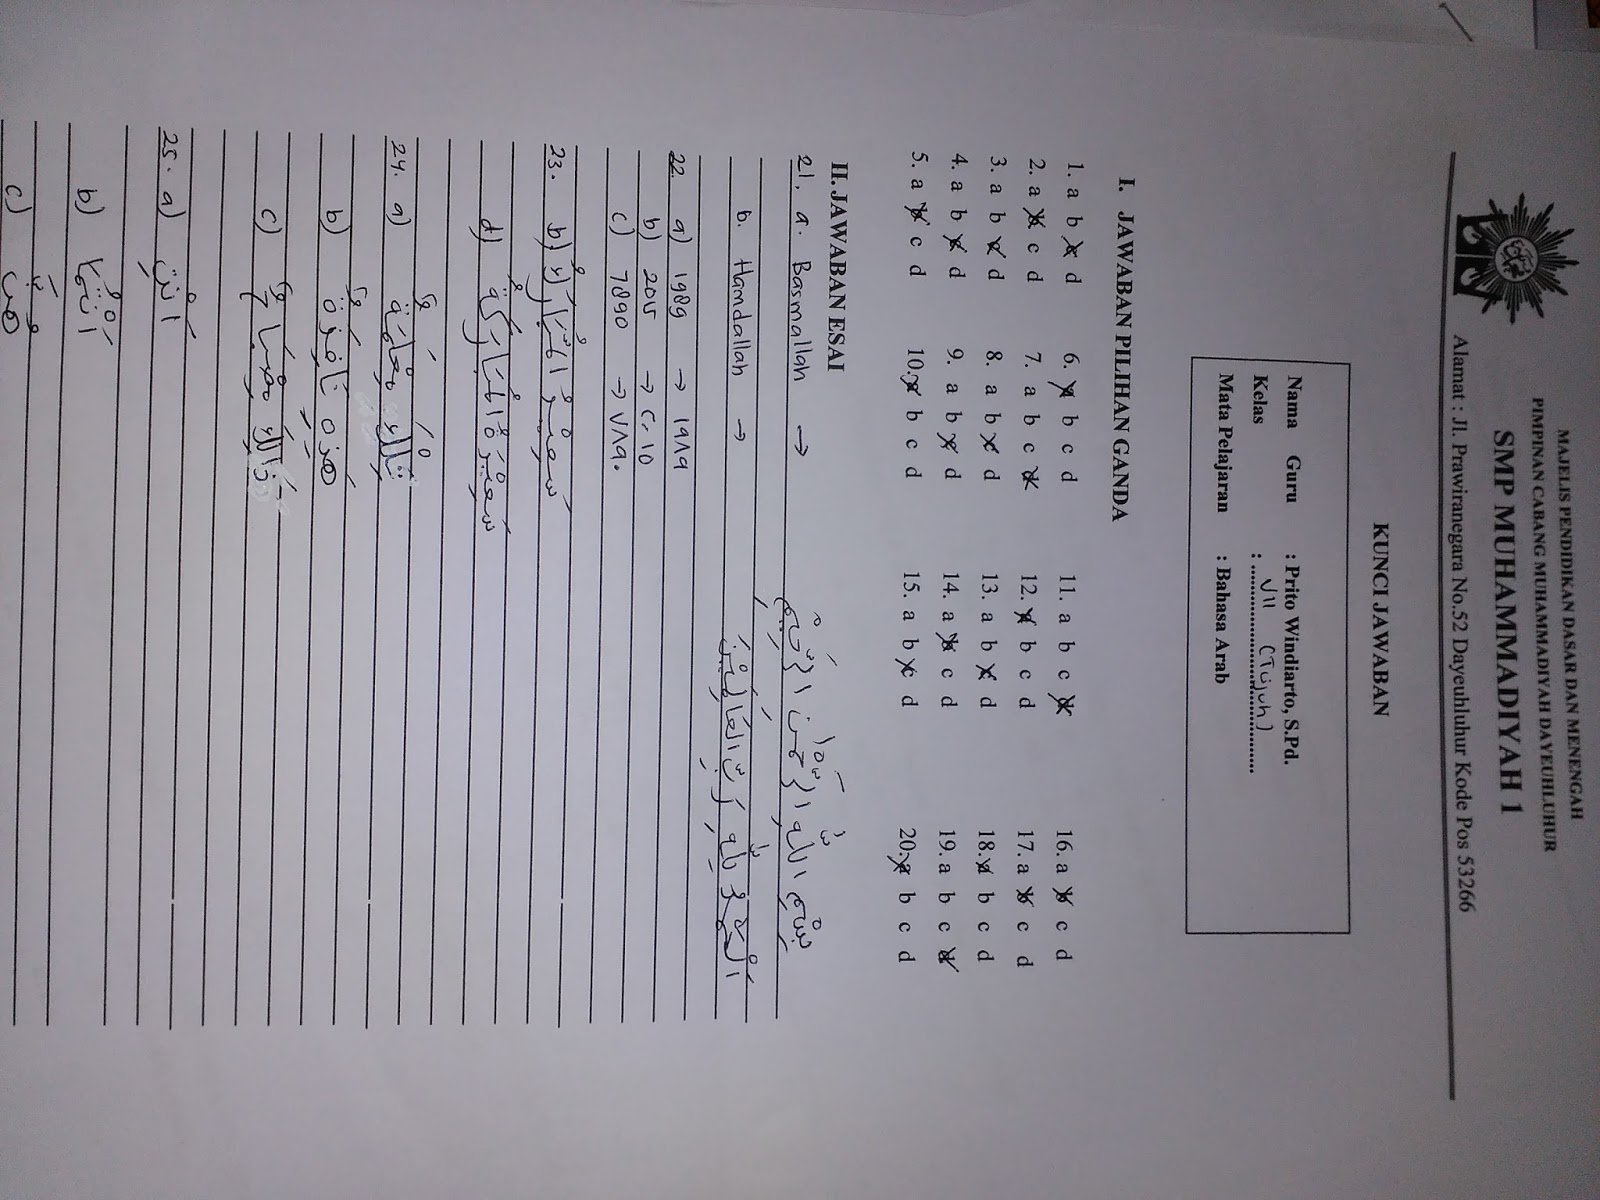 MAJELIS PENDIDIKAN DASAR DAN MENENGAH
PIMPINAN CABANG MUHAMMADIYAH DAYEUHLUHUR
SMP MUHAMMADIYAH 1
Alamat : Jl. Prawiranegara No.52 Dayeuhluhur Kode Pos 53266
KUNCI JAWABAN
Nama Guru : Prito Windiarto, S.Pd.
Kelas : VII (Tujuh)
Mata Pelajaran : Bahasa Arab
I. JAWABAN PILIHAN GANDA
1. a b c d 6. a b c d 11. a b c d 16. a b c d
2. a b c d 7. a b c d 12. a b c d 17. a b c d
3. a b c d 8. a b c d 13. a b c d 18. a b c d
4. a b c d 9. a b c d 14. a b c d 19. a b c d
5. a b c d 10. a b c d 15. a b c d 20. a b c d
II. JAWABAN ESAI
21. a. Basmallah → بسم الله الرحمن الرحيم
b. Hamdallah → الحمد لله رب العالمين
22. a) 1989 → ١٩٨٩
b) 2015 → ٢٠١٥
c) 7890 → ٧٨٩٠
23. b)
d)
24. a) تلك
b) هذه نافذة
c) ذلك
25. a) أنت
b) أنتما
c) هن